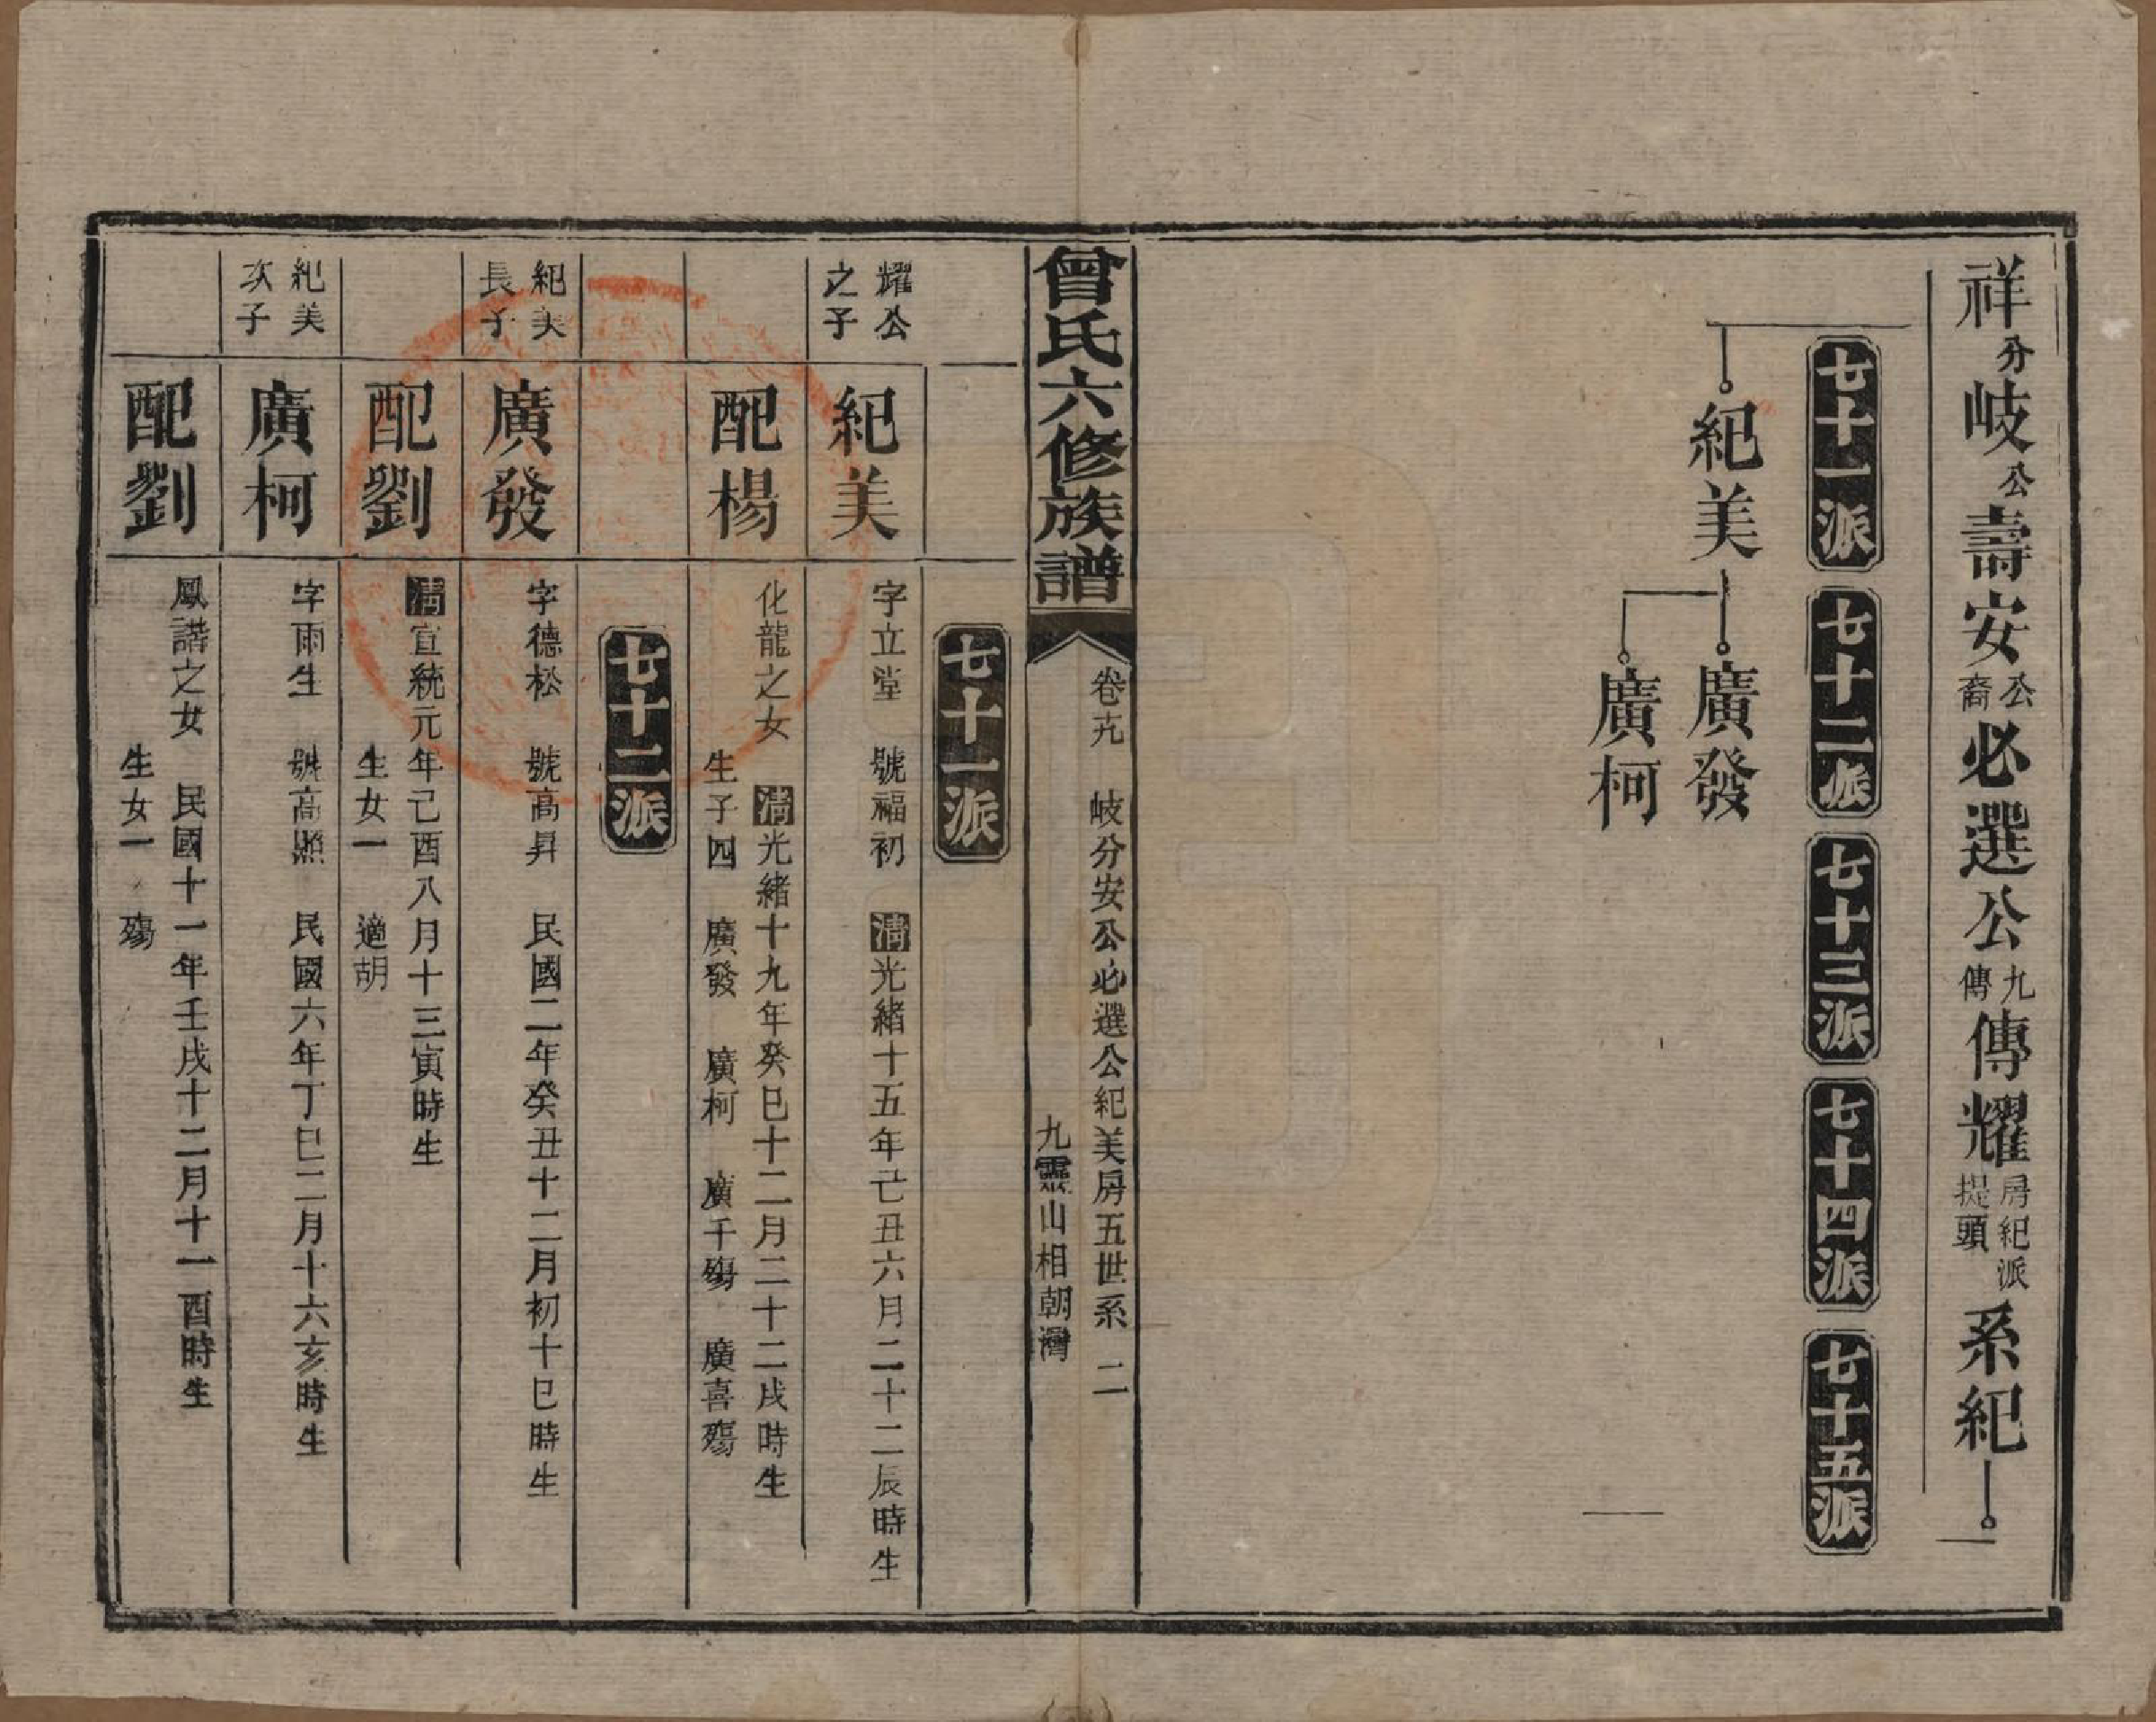 祥分岐公壽安公裔必選公九傳傳耀房紀派提頭系紀
七十一派
七十二派
七十三派
七十四派
七十五派
紀美
廣發
廣柯
曾氏六修族譜
岐分安公必選公紀美房五世系 二
九靈山相朝灣
七十一派
耀公之子
紀美
字立堂 號福初 清光緒十五年己丑六月二十二辰時生
配楊
化龍之女 清光緒十九年癸巳十二月二十二戌時生
生子四 廣發 廣柯 廣千殤 廣喜殤
七十二派
紀美長子
廣發
字德松 號高昇 民國二年癸丑十二月初十巳時生
配劉
清宣統元年己酉八月十三寅時生
生女一 適胡
紀美次子
廣柯
字雨生 號高照 民國六年丁巳二月十六亥時生
配劉
鳳諧之女 民國十一年壬戌十二月十一酉時生
生女一 殤